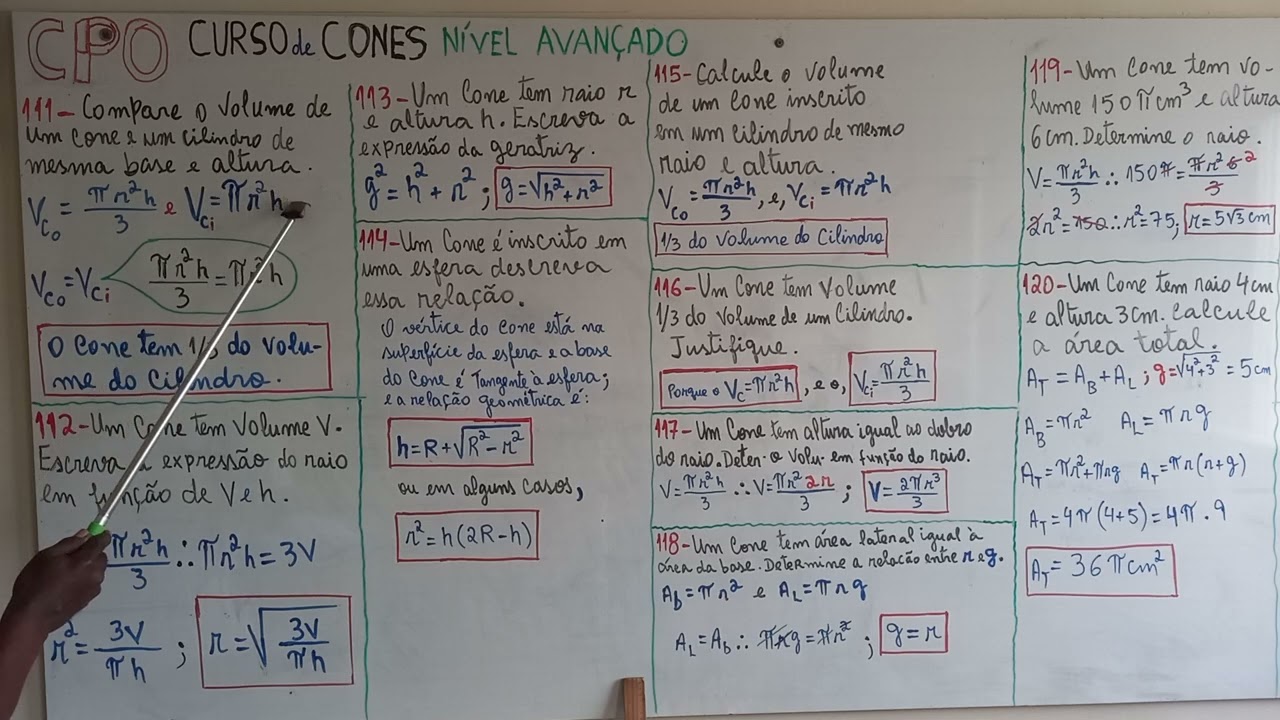 CPO CURSO de CONES NÍVEL AVANÇADO
111- Compare o volume de
um cone e um cilindro de
mesma base e altura.
V_Co = πr²h/3 e V_Ci = πr²h
V_Co = V_Ci πr²h/3 = πr²h
O cone tem 1/3 do volu-
me do cilindro.
112- Um Cone tem volume V.
Escreva a expressão do raio
em função de V e h.
πr²h/3 ∴ πr²h = 3V
r² = 3V/πh ; r = √(3V/πh)
113- Um Cone tem raio r
e altura h. Escreva a
expressão da geratriz.
g² = h² + r² ; g = √(h² + r²)
114- Um Cone é inscrito em
uma esfera descreva
essa relação.
O vértice do cone está na
superfície da esfera e a base
do cone é Tangente à esfera;
e a relação geométrica é:
h = R + √(R² - r²)
ou em alguns casos,
r² = h(2R - h)
115- Calcule o volume
de um cone inscrito
em um cilindro de mesmo
raio e altura.
V_Co = πr²h/3 , e, V_Ci = πr²h
1/3 do volume do Cilindro
116- Um Cone tem Volume
1/3 do volume de um Cilindro.
Justifique.
Porque o V_C = πr²h , e o, V_Ci = πr²h/3
117- Um Cone tem altura igual ao dobro
do raio. Deter. o Volu. em função do raio.
V = πr²h/3 ∴ V = πr²2r/3 ; V = 2πr³/3
118- Um Cone tem área lateral igual à
área da base. Determine a relação entre r e g.
A_B = πr² e A_L = πrg
A_L = A_b ∴ πrg = πr² ; g = r
119- Um Cone tem vo-
lume 150πcm³ e altura
6cm. Determine o raio.
V = πr²h/3 ∴ 150π = πr²6 2/3
2r² = 150 ∴ r² = 75; r = 5√3 cm
120- Um Cone tem raio 4cm
e altura 3cm. Calcule
a área total.
A_T = A_B + A_L ; g = √(4² + 3²) = 5cm
A_B = πr² A_L = πrg
A_T = πr² + πrg A_T = πr(r + g)
A_T = 4π(4+5) = 4π . 9
A_T = 36πcm²